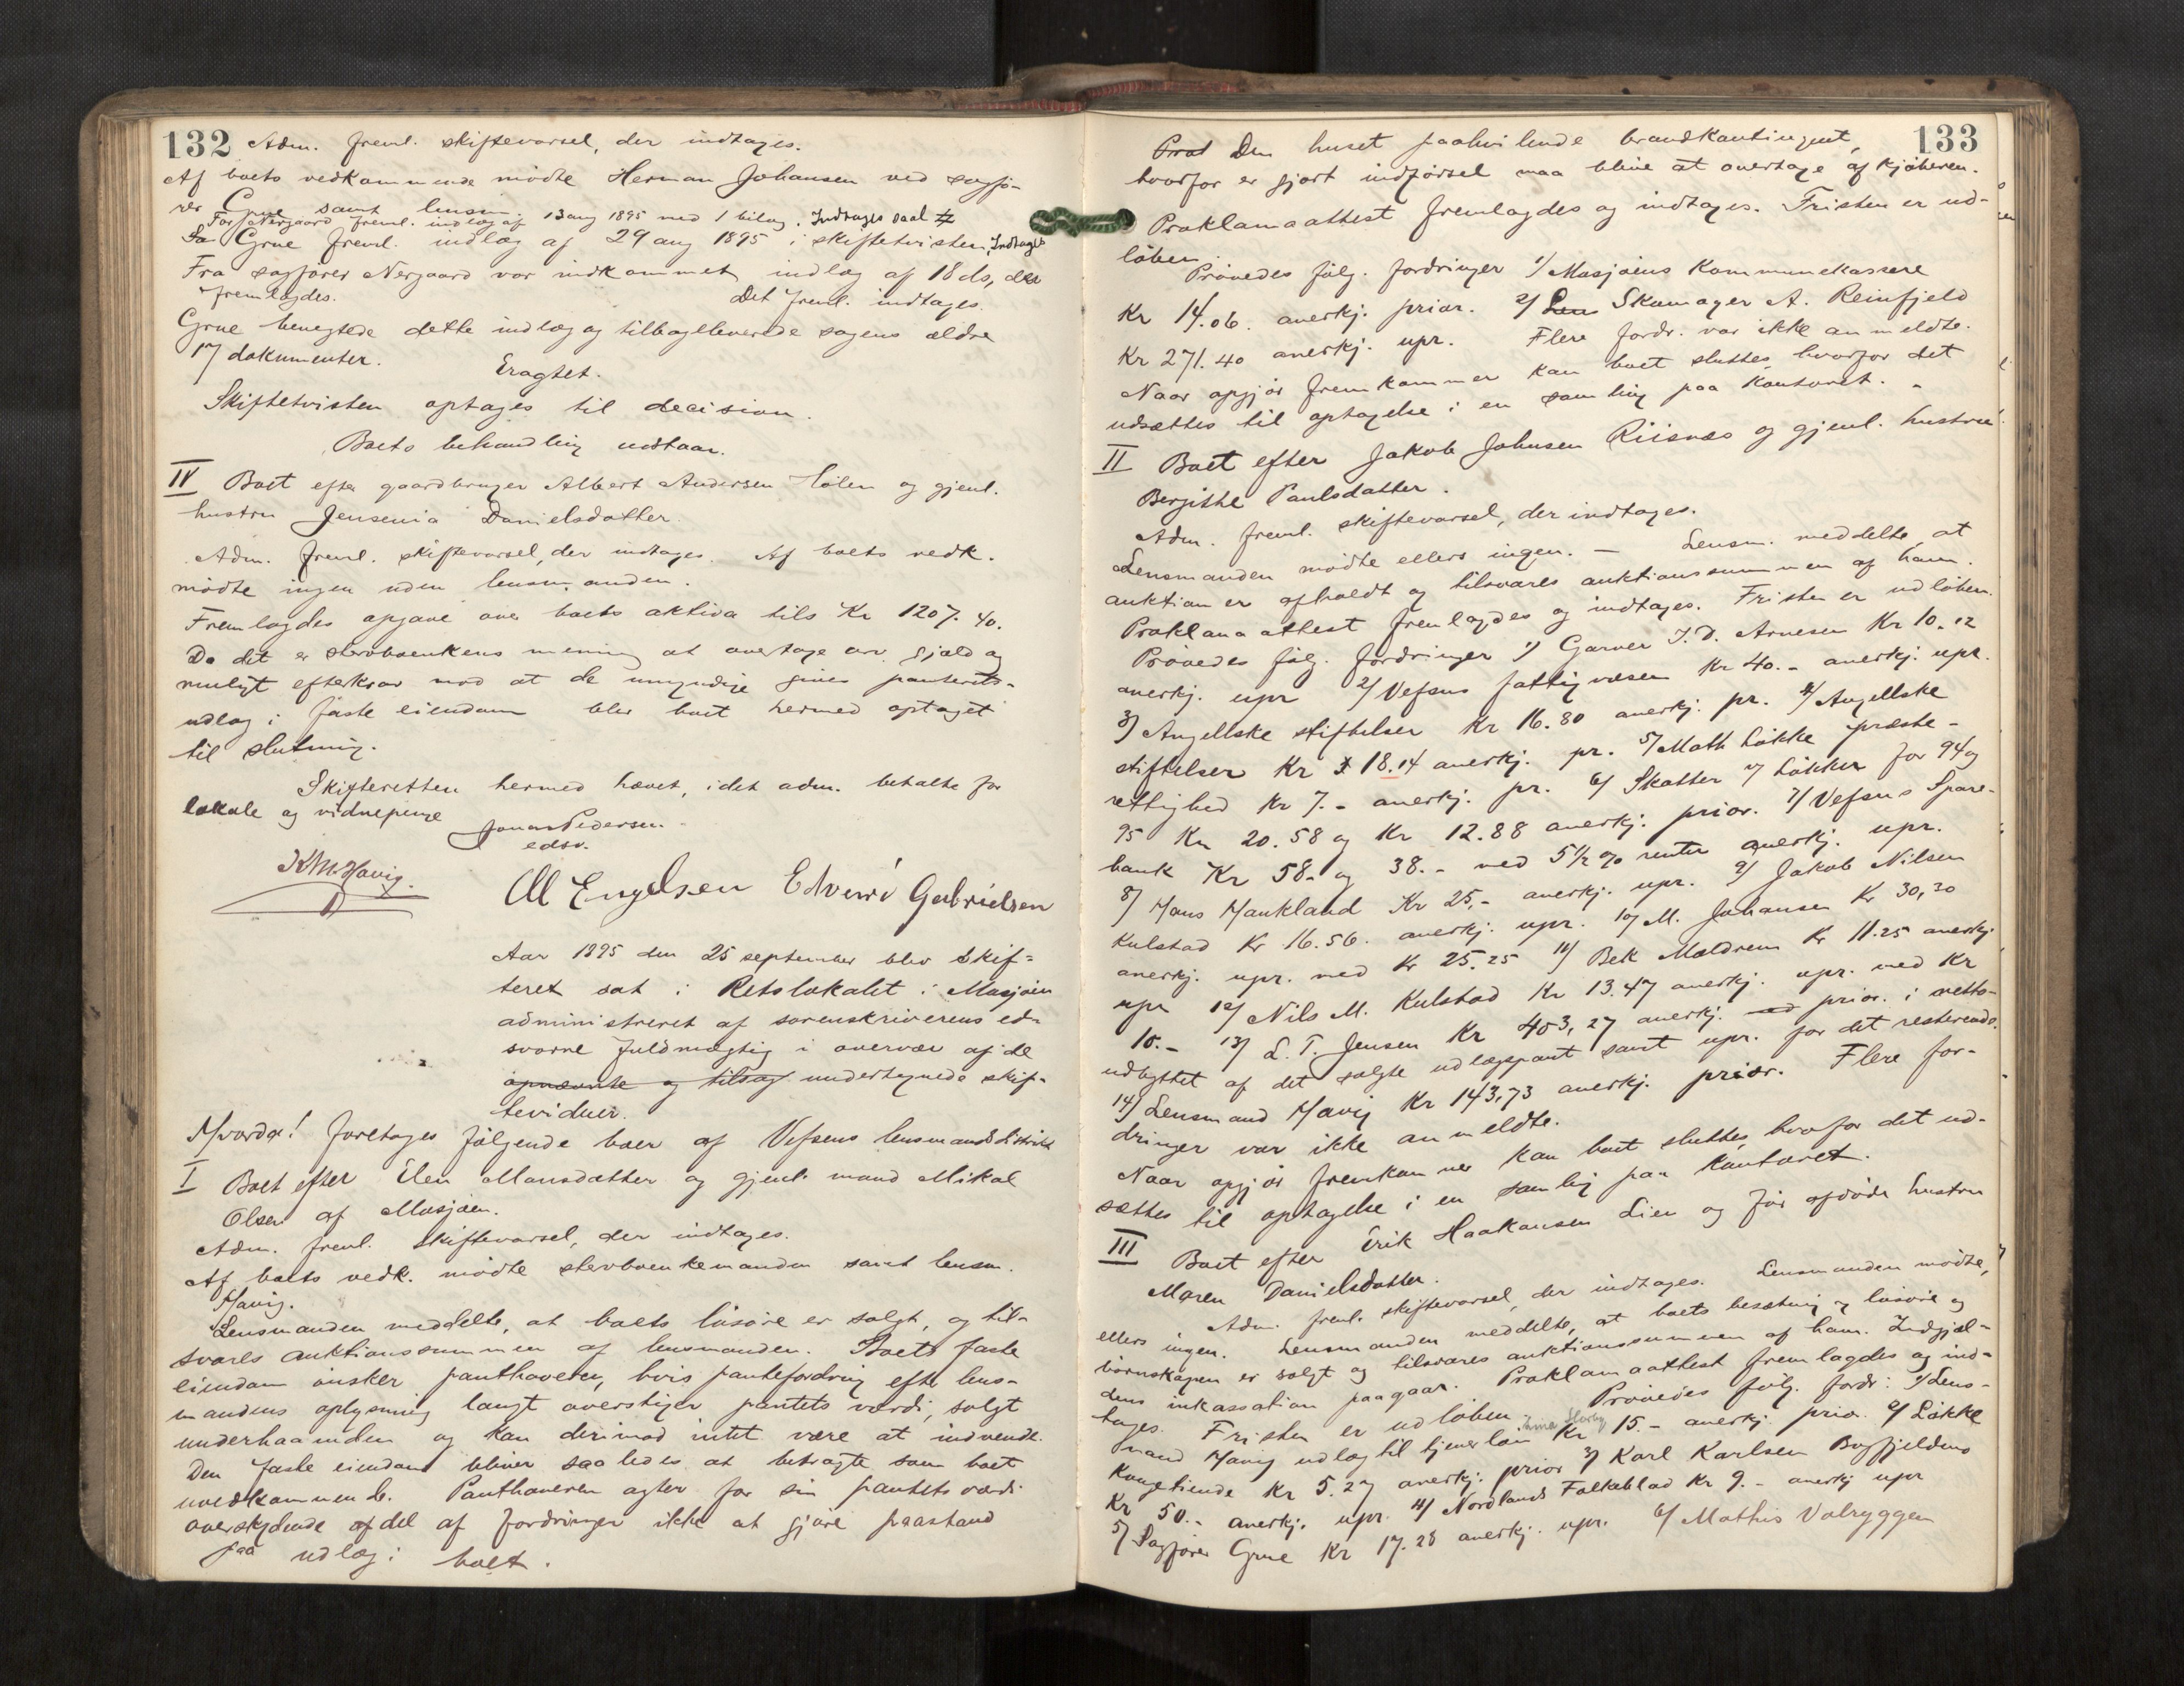 132 Adm. freml. skiftevarsel, der indtages.
Af boets vedkommende mödte Herman Johansen ved sagfö-
rer Grue samt lensm.
For Nergaard freml. indlæg af 13 aug 1895 med 1 bilag. Indtages saal
Grue freml. indlæg af 29 aug 1895 i skiftetvisten, Indtages
Fra sagförer Nergaard var indkommet indlæg af 18 ds, der
fremlagdes. Det freml. indtages.
Grue benegtede dette indlæg og tilbageleverede sagens ældre
17 dokumenter.
Eragtet.
Skiftetvisten optages til decision.
Boets behandling udstaar.
IV Boet efter gaardbruger Albert Andersen Holen og gjenl.
hustru Jensenia Danielsdatter.
Adm. freml. skiftevarsel, der indtages. Af boets vedk.
mödte ingen uden lensmanden.
Fremlagdes opgave over boets aktiva tils Kr 1207.40.
Da det er stervboenkens mening at overtage arv gjæld og
muligt efterkrav mod at de umyndige gives panterets-
udlæg i faste eiendom blev boet hermed optaget
til slutning.
Skifteretten hermed hævet, idet adm. betalte for
lokale og vidnepenge
Jonas Pedersen
edsv.
KM Havig.
M Engelsen Edvard Gabrielsen
Aar 1895 den 25 september blev skif-
teret sat i Retslokalet i Mosjöen
administreret af sorenskriverens ed-
svorne fuldmægtig i overvær af de
opnævnte og tilsag undertegnede skif-
tevidner.
Hvorda! foretages fölgende boer af Vefsens lensmandsdistrikt
I Boet efter Elen Monsdatter og gjenl. mand Mikal
Olsen af Mosjöen.
Adm. freml. skiftevarsel, der indtages.
Af boets vedk. mödte stervboenkemanden samt lensm.
Havig.
Lensmanden meddelte, at boets lösöre er solgt, og til-
svares auktionssummen af lensmanden. Boets faste
eiendom önsker panthaveren, hvis pantefordring efter lens-
mandens oplysning langt overstiger pantets værdi, solgt
underhaanden og kan derimod intet være at indvende.
Den faste eiendom bliver saaledes at betragte som boet
uvedkommende. Panthaveren agter for sin pantets værdi
overskydende del af fordringer ikke at gjöre paastand
paa udlæg i boet.
133
Den huset paahvilende brandkontingent,
hvorfor er gjort indförsel maa blive at overtage af kjöberen.
Proklamaattest fremlagdes og indtages. Fristen er ud-
löben
Prövedes fölg. fordringer 1/ Mosjöens kommunekassere
Kr 14.06. anerkj. prior. 2/ Skomager A. Reinfjeld
Kr 271.40 anerkj. upr. Flere fordr. var ikke anmeldte.
Naar opgjör fremkommer kan boet sluttes, hvorfor det
udsættes til optagelse i en samling paa kontoret. -
II Boet efter Jakob Johnsen Riisnæs og gjenl. hustru
Bergithe Paulsdatter.
Adm. freml. skiftevarsel, der indtages.
Lensmanden mödte ellers ingen. - Lensm. meddelte, at
auktion er afholdt og tilsvares auktionssummen af ham.
Proklamaattest fremlagdes og indtages. Fristen er udlöben.
Prövedes fölg. fordringer 1/ Garver I. D. Arnesen Kr 10.12
anerkj. upr 2/ Vefsns fattigvæsen Kr 40.- anerkj. upr.
3) Angellske stiftelser Kr 16.80 anerkj. pr. 4/ Angellske
stiftelser Kr 18.14 anerkj. pr. 5/ Math Løkke præste-
rettighed Kr 7.- anerkj. pr. 6/ Skatter Løkker for 94 og
95 Kr 20.58 og Kr 12.88 anerkj. prior. 7/ Vefsns Spare-
bank Kr 58.- og 38.- med 5 1/2 % renter anerkj. upr.
8) Hans Haukland Kr 25,- anerkj. upr. 9/ Jakob Nilsen
Kulstad Kr 16.56. anerkj. upr. 10/ M. Johansen Kr 30,30
anerkj. upr. med Kr 25.25 11/ Bek Mældrem Kr 11.25 anerkj
upr 12/ Nils M. Kulstad Kr 13.47 anerkj. upr. med Kr
10.- 13/ L. T. Jensen Kr 403,27 anerkj. prior. i netto-
udbyttet af det solgte udlægspant samt upr. for det resterende.
14) Lensmand Havig Kr 143,73 anerkj. prior. Flere for-
dringer var ikke anmeldte.
Naar opgjör fremkommer kan boet sluttes, hvorfor det ud-
sættes til optagelse i en samling paa kontoret.
III Boet efter Erik Haakonsen Lien og för afdöde hustru
Maren Danielsdatter.
Adm. freml. skiftevarsel, der indtages. Lensmanden mödte,
ellers ingen. Lensmanden meddelte, at boets besætning og lösöre og
börnskapen er solgt og tilsvares auktionssummen af ham. Indgjæl-
dens inkassation paagaar. Proklamaattest fremlagdes og ind-
tages. Fristen er udlöben. Prövedes fölg. fordr: 1/ Lens-
mand Havig udlæg til tjenerlön Kr 15.- anerkj. prior. 2/ Løkke
Kongetiende Kr 5.27 anerkj. prior 3/ Karl Karlsen Bogfjeldmo
Kr 50.- anerkj. upr. 4/ Nordlands Folkeblad Kr 9.- anerkj upr
5/ Sagförer Grue Kr 17.28 anerkj. upr. 6/ Mathis Valryggen